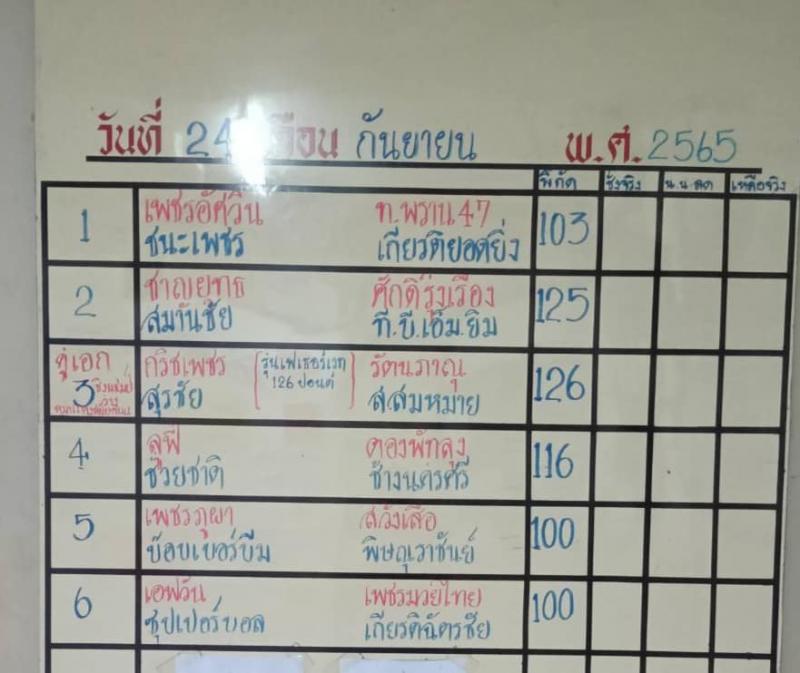 วันที่ 24 เดือน กันยายน พ.ศ. 2565
พิกัด ชั่งจริง น.น.ลด เหลือจริง
1 เพชรอัศวิน ท.พราน 47 103
ชนะเพชร เกียรติยอดยิ่ง
2 ชาญยุทธ ศักดิ์รุ่งเรือง 125
สมานชัย ที.บี.เอ็ม.ยิม
คู่เอก กริชเพชร รุ่นเฟเธอร์เวท รัตนภาณุ 126
126 ปอนด์
3 สุรชัย ส.สมหมาย
4 ลูฟี่ ดองพัทลุง 116
ช่วยชาติ ช้างนครศรี
5 เพชรภูผา สวิงเสือ 100
บ๊อบเบอร์บีม พิษณุราชันย์
6 เอฟวัน เพชรมวยไทย 100
ซุปเปอร์บอล เกียรติฉัตรชัย